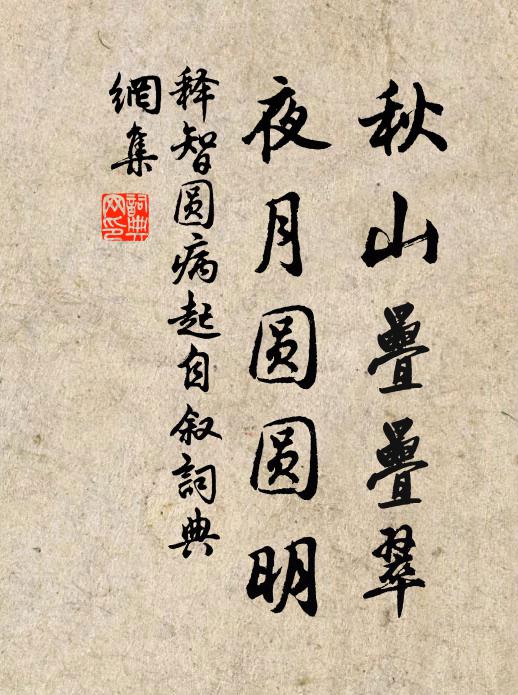 秋山疊疊翠
夜月圆圆明
释智圆病起自叙詞典
網集
詞典
网印